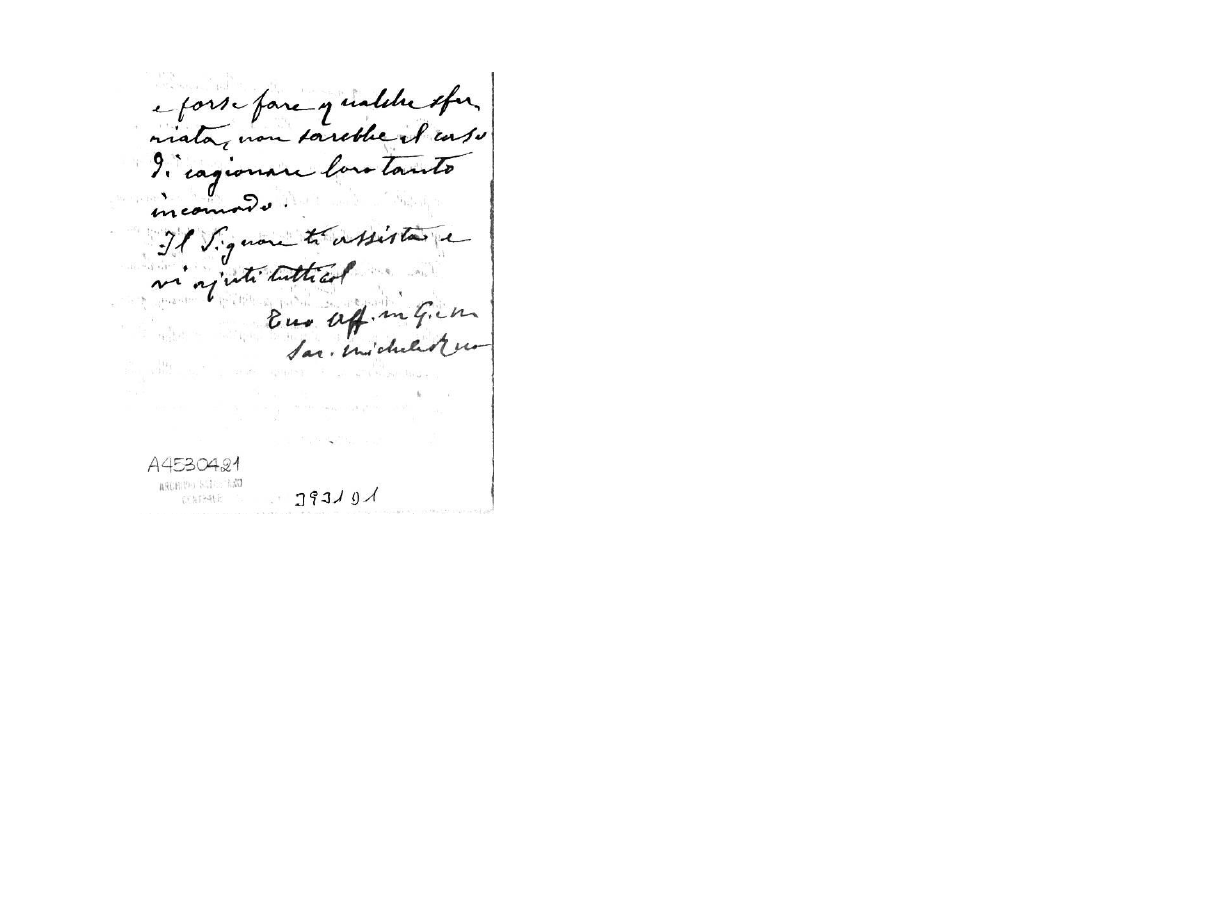 e forse fare qualche sfer,
riata, non sarebbe il caso
di cagionare loro tanto
incomodo.
Il Signore ti assista e
vi ajuti tutti col
Tuo Aff. in G. e M
Sac. Michele Rua
A4530421
CENTRALE
393191